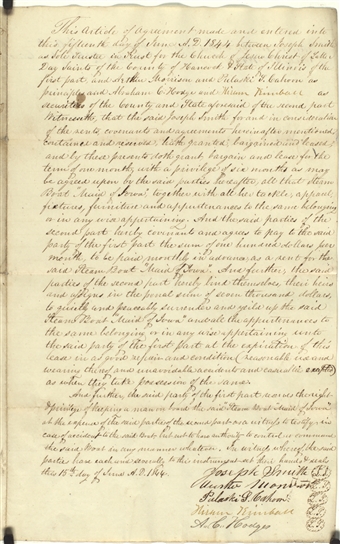 This Article of agreement made and entered into
this fifteenth day of June A.D. 1844 between Joseph Smith
as Sole Trustee in Trust for the Church of Jesus Christ of Latter
Day Saints of the County of Hancock & State of Illinois of the
first part and Arthur Morrison and Pulaski S. Cahoon as
principals and Abraham C. Hodge and Hiram Kimball as
securities of the County and State aforesaid of the second part
Witnesseth, that the said Joseph Smith for and in consideration
of the rents covenants and agreements hereinafter mentioned
contained and reserved hath granted bargained and leased
and by these presents doth grant bargain and lease for the
term of one month, with a privilege of six months as may
be agreed upon by the said parties hereafter, all that Steam
Boat "Maid of Iowa" together with all the tackle, apparel,
fixtures, furniture and appurtenances to the same belonging
or in any wise appertaining. And the said parties of the
second part hereby covenant and agree to pay to the said
party of the first part the sum of one hundred dollars per
month, to be paid monthly in advance, as a rent for the
said Steam Boat "Maid of Iowa". And further, the said
parties of the second part hereby bind themselves, their heirs
and assigns in the penal sum of seven thousand dollars,
to quietly and peaceably surrender and yield up the said
Steam Boat "Maid of Iowa" and all the appurtenances to
the same belonging or in any wise appertaining unto
the said party of the first part at the expiration of this
lease in as good repair and condition (reasonable use and
wearing thereof and unavoidable accidents and casualties excepted)
as when they take possession of the same.
And further, the said party of the first part reserves the right
& privilege of keeping a man on board the said Steam Boat Maid of Iowa
at the expense of the said parties of the second part as a witness to testify in
case of accident to the said boat but not to have authority to control or command
the said boat in any manner whatever. In witness whereof the said
parties have each and severally to this instrument set their hands & seals
this 15th day of June A.D. 1844.
Joseph Smith
Arthur Morrison
Pulaski S. Cahoon
Hiram Kimball
A. C. Hodge